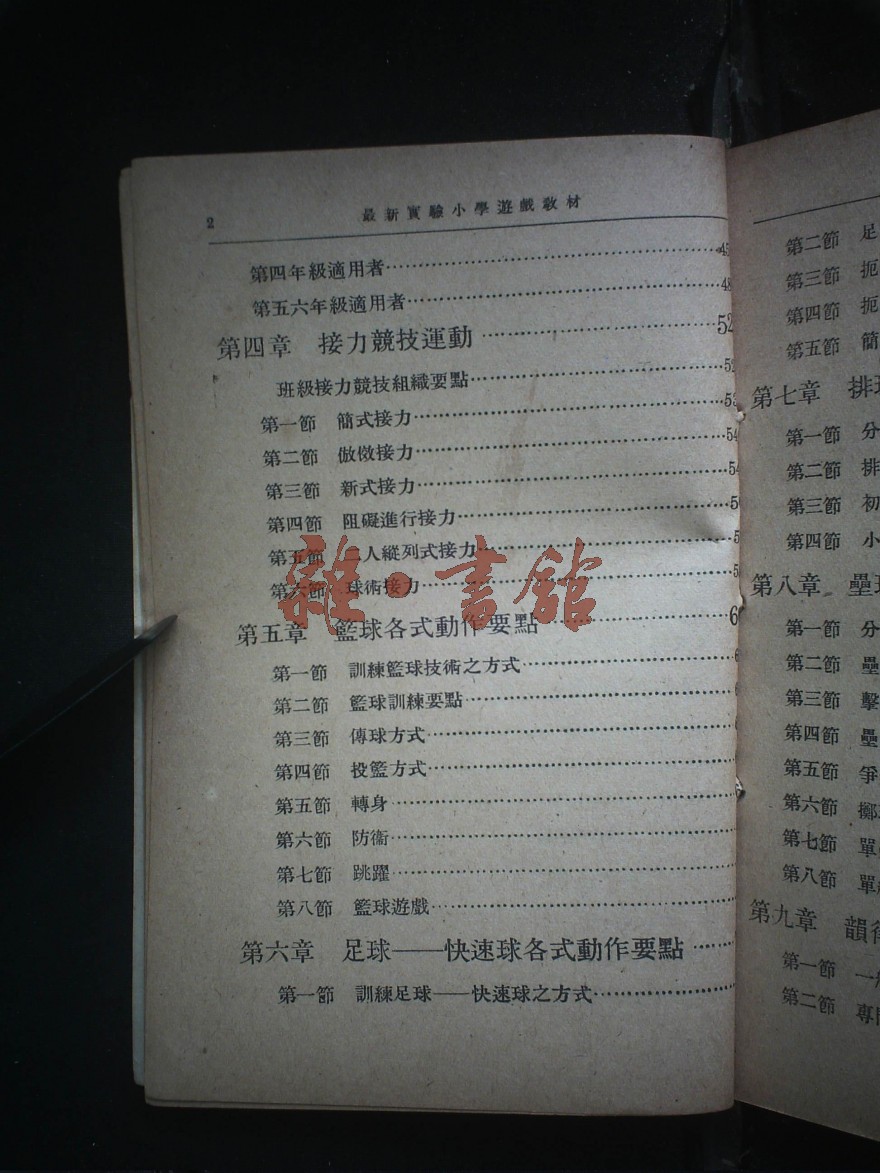 2
最新實驗小學遊戲教材
第四年級適用者……45
第五六年級適用者……48
第四章 接力競技運動……52
班級接力競技組織要點……52
第一節 簡式接力……53
第二節 倣傚接力……54
第三節 新式接力……54
第四節 阻礙進行接力……5
第五節 二人縱列式接力……5
第六節 球術接力……5
第五章 籃球各式動作要點……6
第一節 訓練籃球技術之方式……6
第二節 籃球訓練要點……
第三節 傳球方式……
第四節 投籃方式……
第五節 轉身……
第六節 防衞……
第七節 跳躍……
第八節 籃球遊戲……
第六章 足球——快速球各式動作要點……
第一節 訓練足球——快速球之方式……
雜·書館
第二節 足
第三節 扼
第四節 扼
第五節 簡
第七章 排球
第一節 分
第二節 排
第三節 初
第四節 小
第八章 壘球
第一節 分
第二節 壘
第三節 擊
第四節 壘
第五節 爭
第六節 擲
第七節 單
第八節 單
第九章 韻律
第一節 一般
第二節 專門